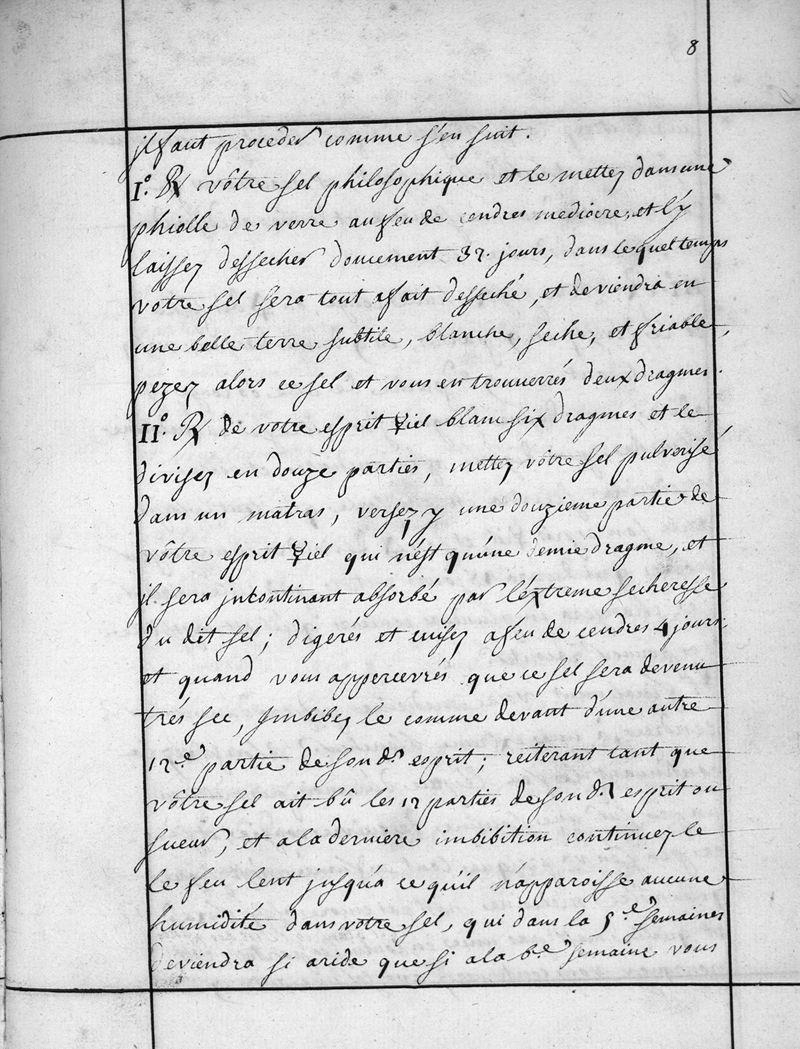 8
il faut proceder comme s'en suit.
I.° ℞ vôtre sel philosophique et le mettez dans une
phiolle de verre au feu de cendres mediocre, et l'y
laissez dessecher doucement 32. jours, dans lequel temps
votre sel sera tout afait desseché, et deviendra en
une belle terre subtile, blanche, seche, et friable,
pezez alors ce sel et vous en trouverrés deux dragmes.
II.° ℞ de votre esprit ☿iel blanc six dragmes et le
divisez en douze parties, mettez vôtre sel pulverisé
dans un matras, versez y une douzieme partie de
vôtre esprit ☿iel qui n'ést qu'une demie dragme, et
il sera jncontinant absorbé par l'éxtreme secheresse
du dit sel; digerés et cuisez a feu de cendres 4 jours;
et quand vous appercevrés que ce sel sera devenu
trés sec, Jmbibez le comme devant d'une autre
12.e partie de son d.t esprit; reiterant tant que
vôtre sel ait bû les 12 parties de son d.t esprit ou
sueur, et a la derniere imbibition continuez le
le feu lent jusqu'a ce qu'il n'apparoisse aucune
humidité dans votre sel, qui dans la 5.e semaines
deviendra si aride que si a la 6.e semaine vous